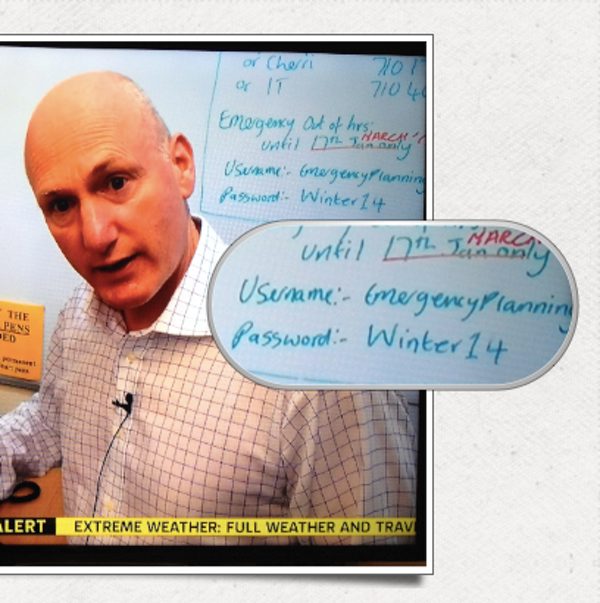 or Cherri 710 1
or IT 710 46
Emergency Out of hrs:
until 17th Jan only MARCH
Username:- EmergencyPlanning
Password:- Winter14
until 17th Jan only MARCH
Username:- EmergencyPlanning
Password:- Winter14
THE
PENS
ED
permanent
pens
ALERT EXTREME WEATHER: FULL WEATHER AND TRAV